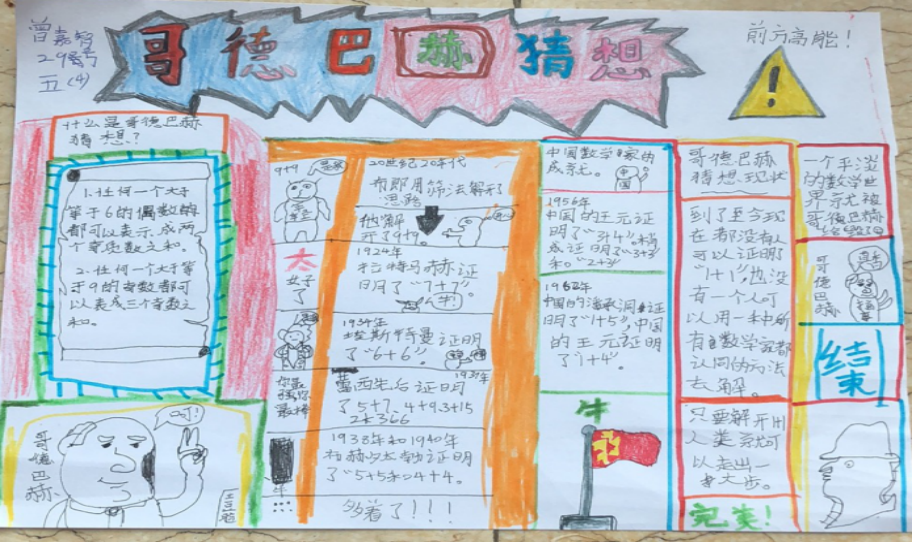 曾嘉智
29号
五(4)
哥德巴赫猜想
前方高能！
!
什么是哥德巴赫
猜想？
1.任何一个大于
等于6的偶数
都可以表示成两
个奇质数之和。
2.任何一个大于等
于9的奇数都可
以表成三个奇数之
和。
哥德巴赫
叮！
9+9
20世纪20年代
布朗用筛法解开了
思路
他解
开了9+9。
太
女子
了
1924年
拉特马赫证
明了"7+7"。
牛！
1934年
埃斯特曼证明
了"6+6"。
1937年
蕾西先后证明
了5+7、4+9、3+15
2+366
1938年和1940年
证明
了"5+5和4+4。
多着了！！！
中国数学家的
成就。
中国
1956年
中国的王元证
明了"3+4"。稍
后证明了"3+3"
和"2+3"
1962年
中国的潘承洞证
明了"1+5"，中国
的王元证明
了"1+4"
牛
哥德巴赫
猜想现状
到了至今现
在都没有人
可以证明了
"1+1"，也没
有一个人可
以用一种所
有数学家都
认同的方法
去解。
只要解开用
人类就可
以走出一
大步。
完美！
一个平淡
的数学世
界就被
哥德巴赫
给毁了
哥德巴赫
结
束